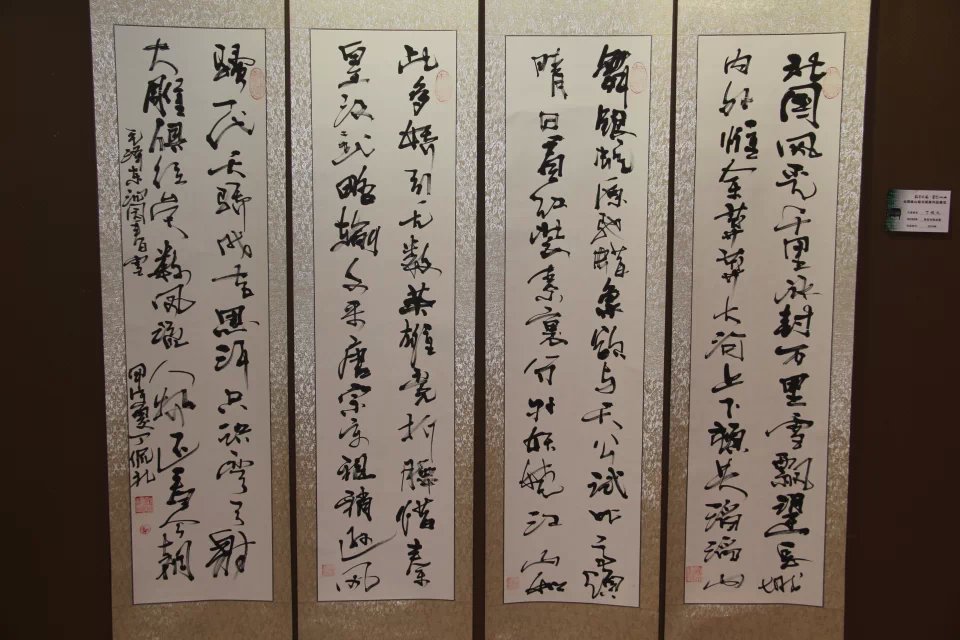 北國风光千里冰封万里雪飘望长城
内外惟余莽莽大河上下顿失滔滔山
舞银蛇原驰蜡象欲与天公试比高须
晴日看红装素裹分外妖娆江山如
此多娇引无数英雄竞折腰惜秦
皇汉武略输文采唐宗宋祖稍逊风
骚一代天骄成吉思汗只识弯弓射
大雕俱往矣数风流人物还看今朝
毛泽东沁园春雪